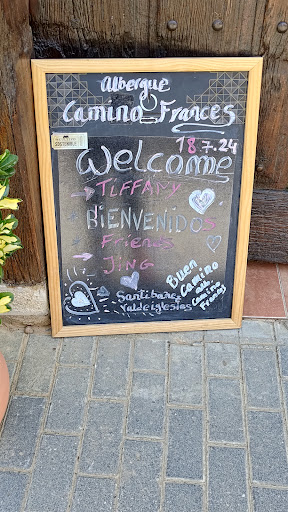 Albergue
Camino Frances
18.7.24
Welcome
→ TIFFANY
BIENVENIDOS
Friends
→ JING
Santibañez
Valdeiglesias
Buen
Camino